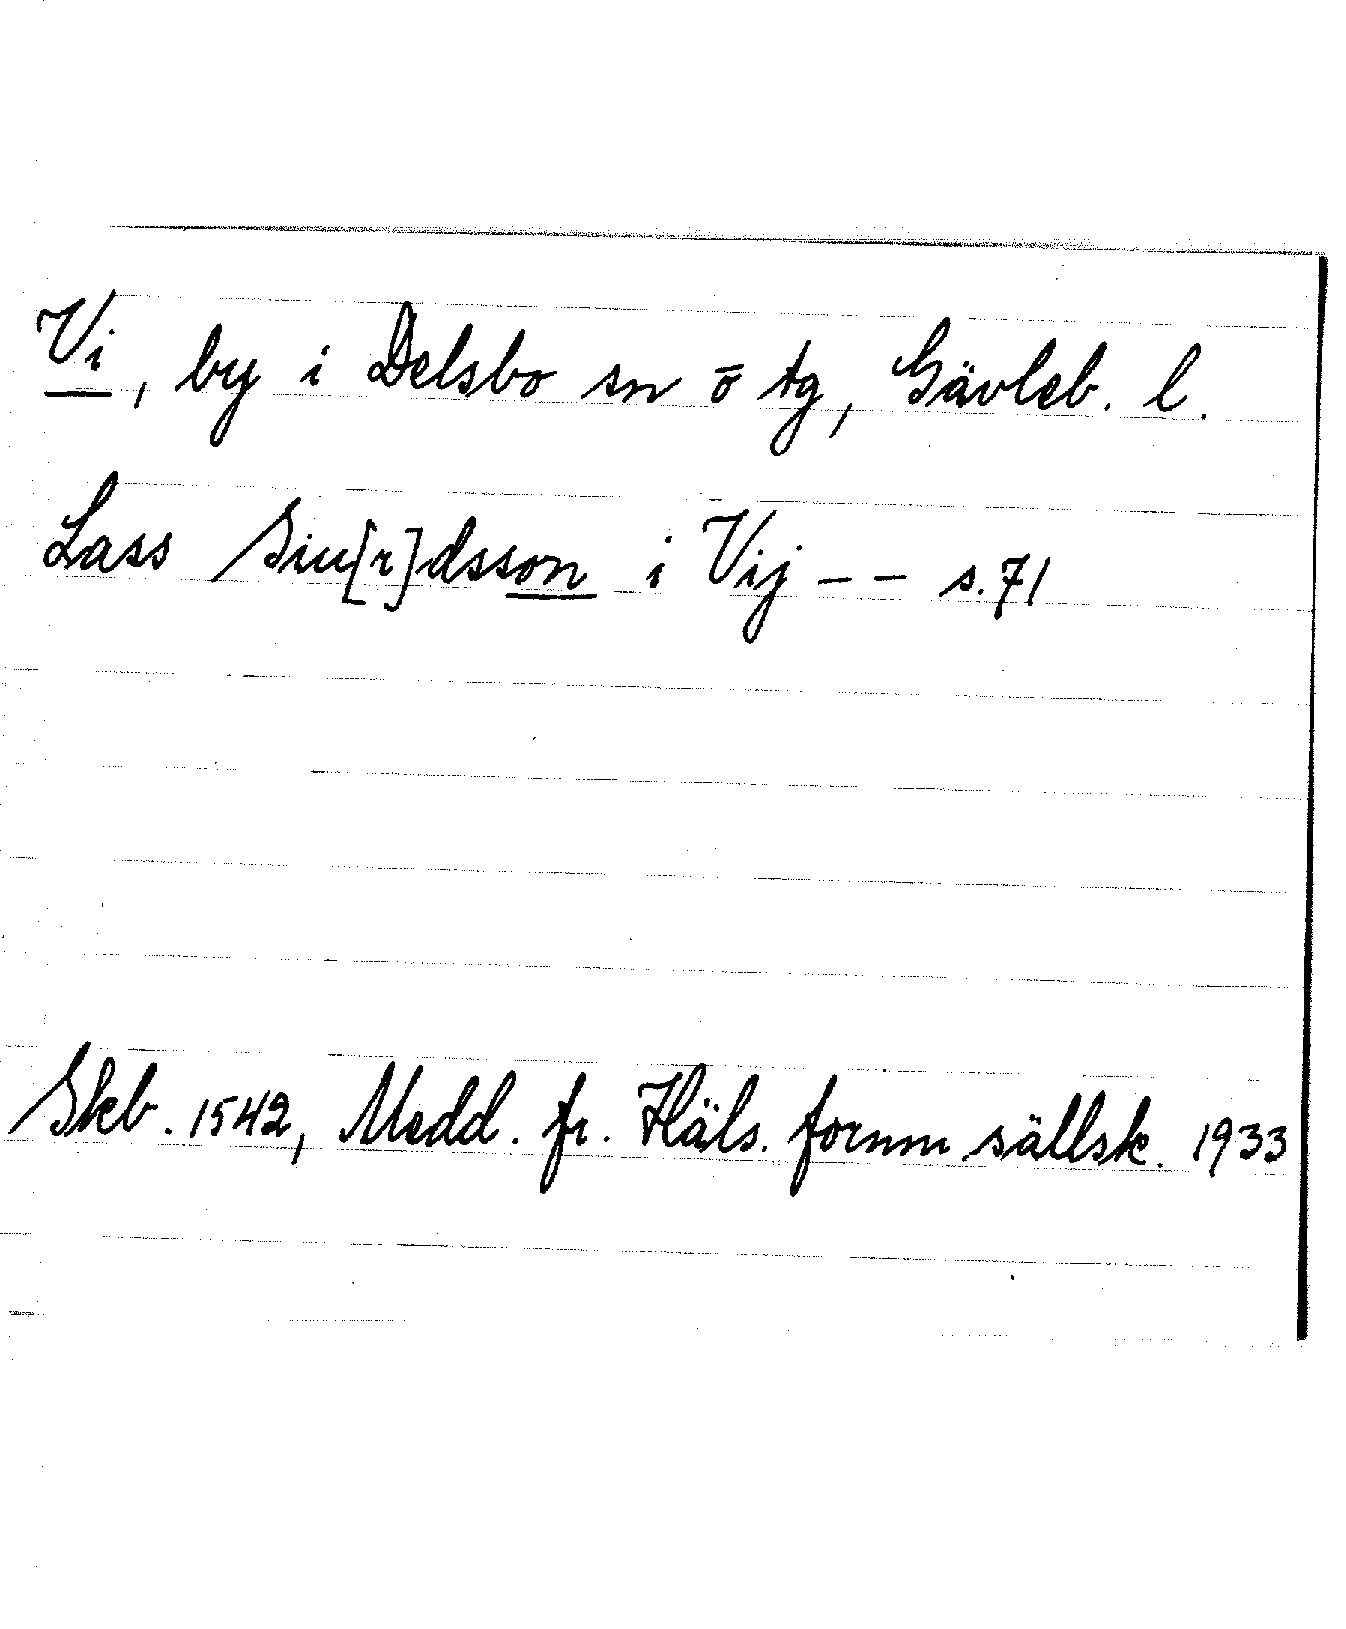 Vi, by i Delsbo sn ō tg, Gävleb. l.
Lass Siu[r]dsson i Vij -- s. 71
Skb. 1542, Medd. fr. Häls. fornm sällsk. 1933